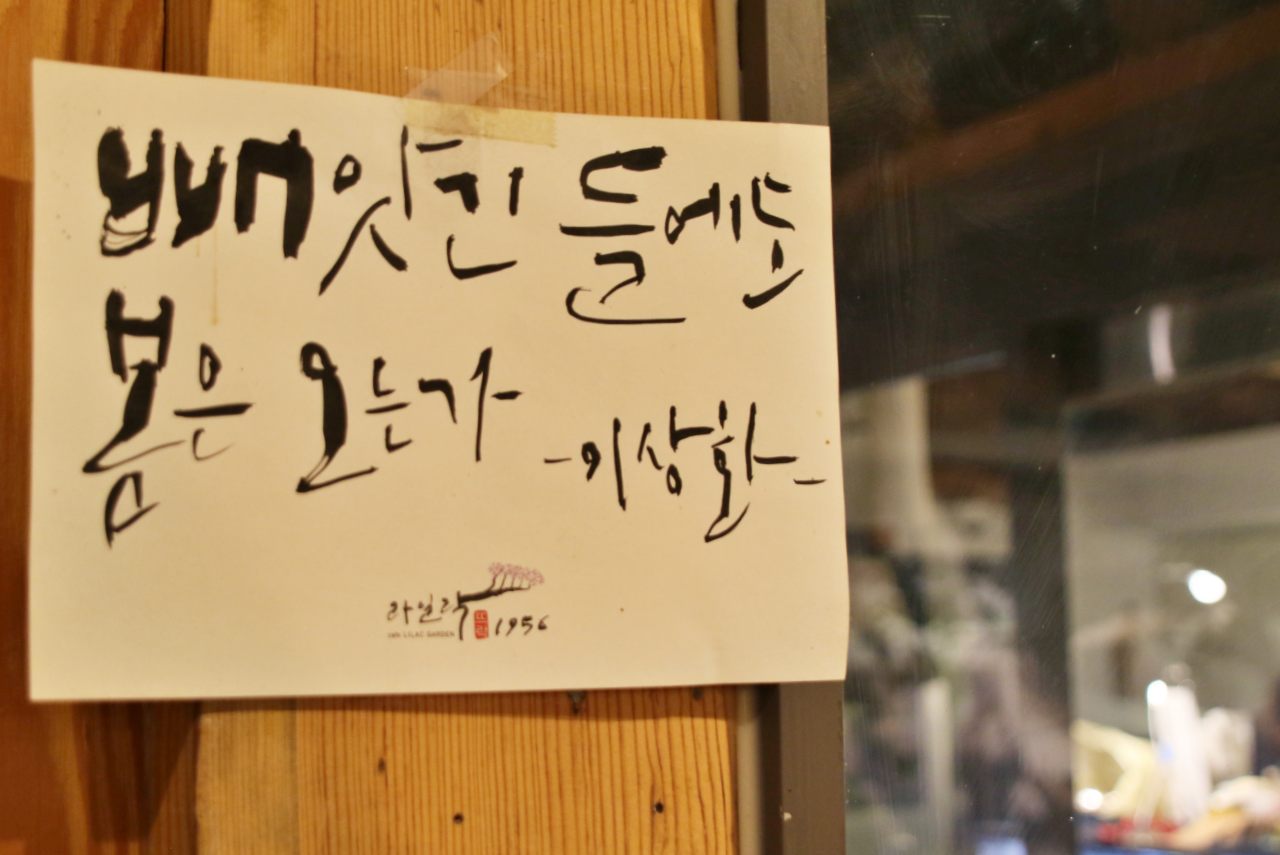 빼앗긴 들에도
봄은 오는가
-이상화-
라일락 뜨락 1956
LILAC GARDEN